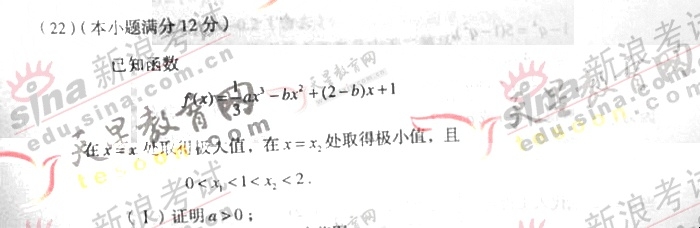 (22)(本小题满分12分)
已知函数
f(x)=1/3ax³-bx²+(2-b)x+1
在x=x 处取得极大值，在x=x₂处取得极小值，且
0<x₁<1<x₂<2.
(1)证明a>0;
sina 新浪考试
edu.sina.com.cn
天星教育网
tesoon.com